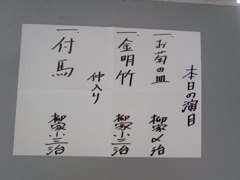 本日の演目
一、お菊の皿 柳家〆治
一、金明竹 柳家小三治
仲入り
一、付馬 柳家小三治